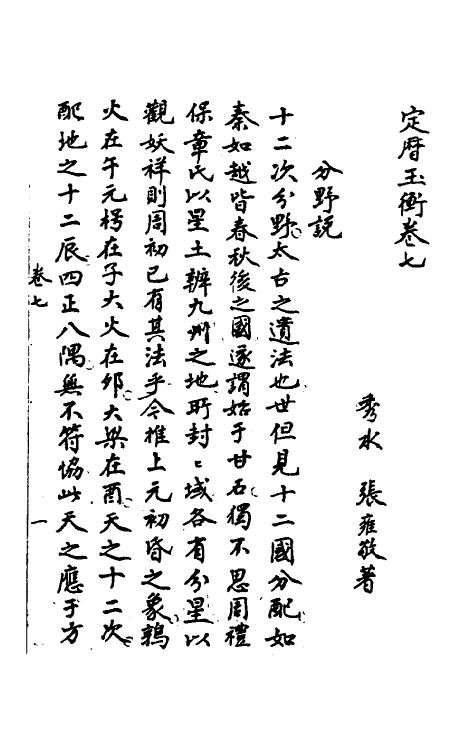 定暦玉衡卷七
秀水 張雍敬著
分野説
十二次分野太古之遺法也世但見十二國分配如
秦如越皆春秋後之國遂謂始于甘石獨不思周禮
保章氏以星土辨九州之地所封〻域各有分星以
觀妖祥則周初已有其法乎今推上元初昏之象鶉
火在午元枵在子大火在卯大梁在酉天之十二次
配地之十二辰四正八隅無不符協此天之應于方
卷七
一